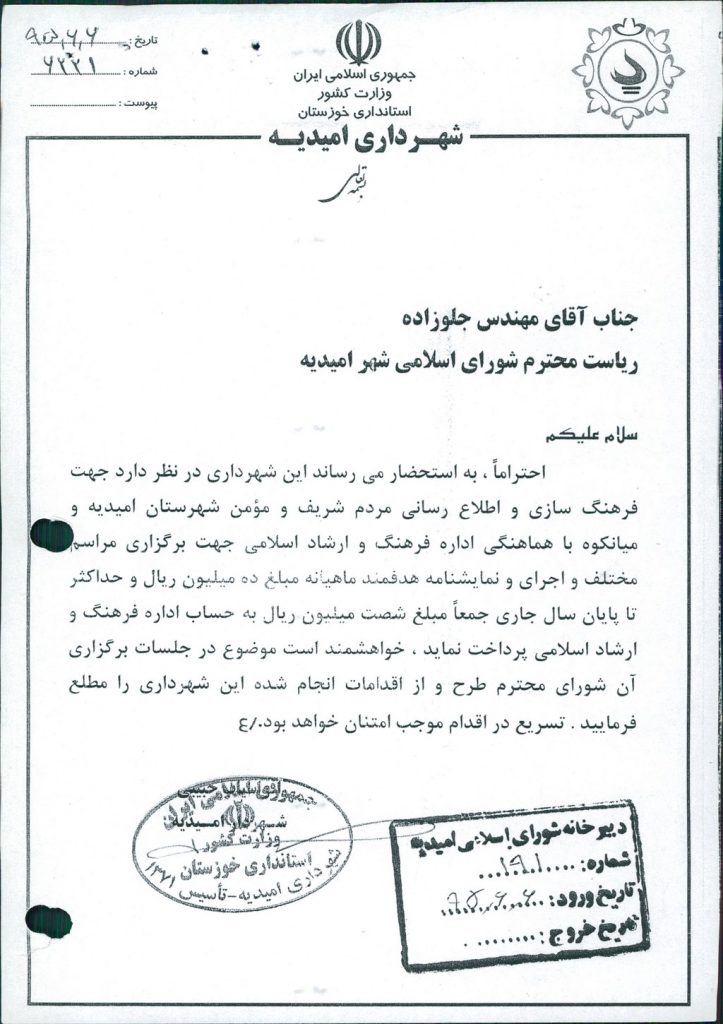 تاریخ : ۹۵،۶،۶
شماره : ۶۲۲۱
پیوست :
جمهوری اسلامی ایران
وزارت کشور
استانداری خوزستان
شهرداری امیدیه
بسمه تعالی
جناب آقای مهندس جلوزاده
ریاست محترم شورای اسلامی شهر امیدیه
سلام علیکم
احتراماً ، به استحضار می رساند این شهرداری در نظر دارد جهت
فرهنگ سازی و اطلاع رسانی مردم شریف و مؤمن شهرستان امیدیه و
میانکوه با هماهنگی اداره فرهنگ و ارشاد اسلامی جهت برگزاری مراسم
مختلف و اجرای و نمایشنامه هدفمند ماهیانه مبلغ ده میلیون ریال و حداکثر
تا پایان سال جاری جمعاً مبلغ شصت میلیون ریال به حساب اداره فرهنگ و
ارشاد اسلامی پرداخت نماید ، خواهشمند است موضوع در جلسات برگزاری
آن شورای محترم طرح و از اقدامات انجام شده این شهرداری را مطلع
فرمایید . تسریع در اقدام موجب امتنان خواهد بود./ع
جمهوری اسلامی ایران
شهردار امیدیه
وزارت کشور
استانداری خوزستان
شهرداری امیدیه-تأسیس ۱۳۷۱
دبیرخانه شورای اسلامی امیدیه
شماره: ۱۹۱۰
تاریخ ورود: ۹۵،۶،۶
تاریخ خروج: